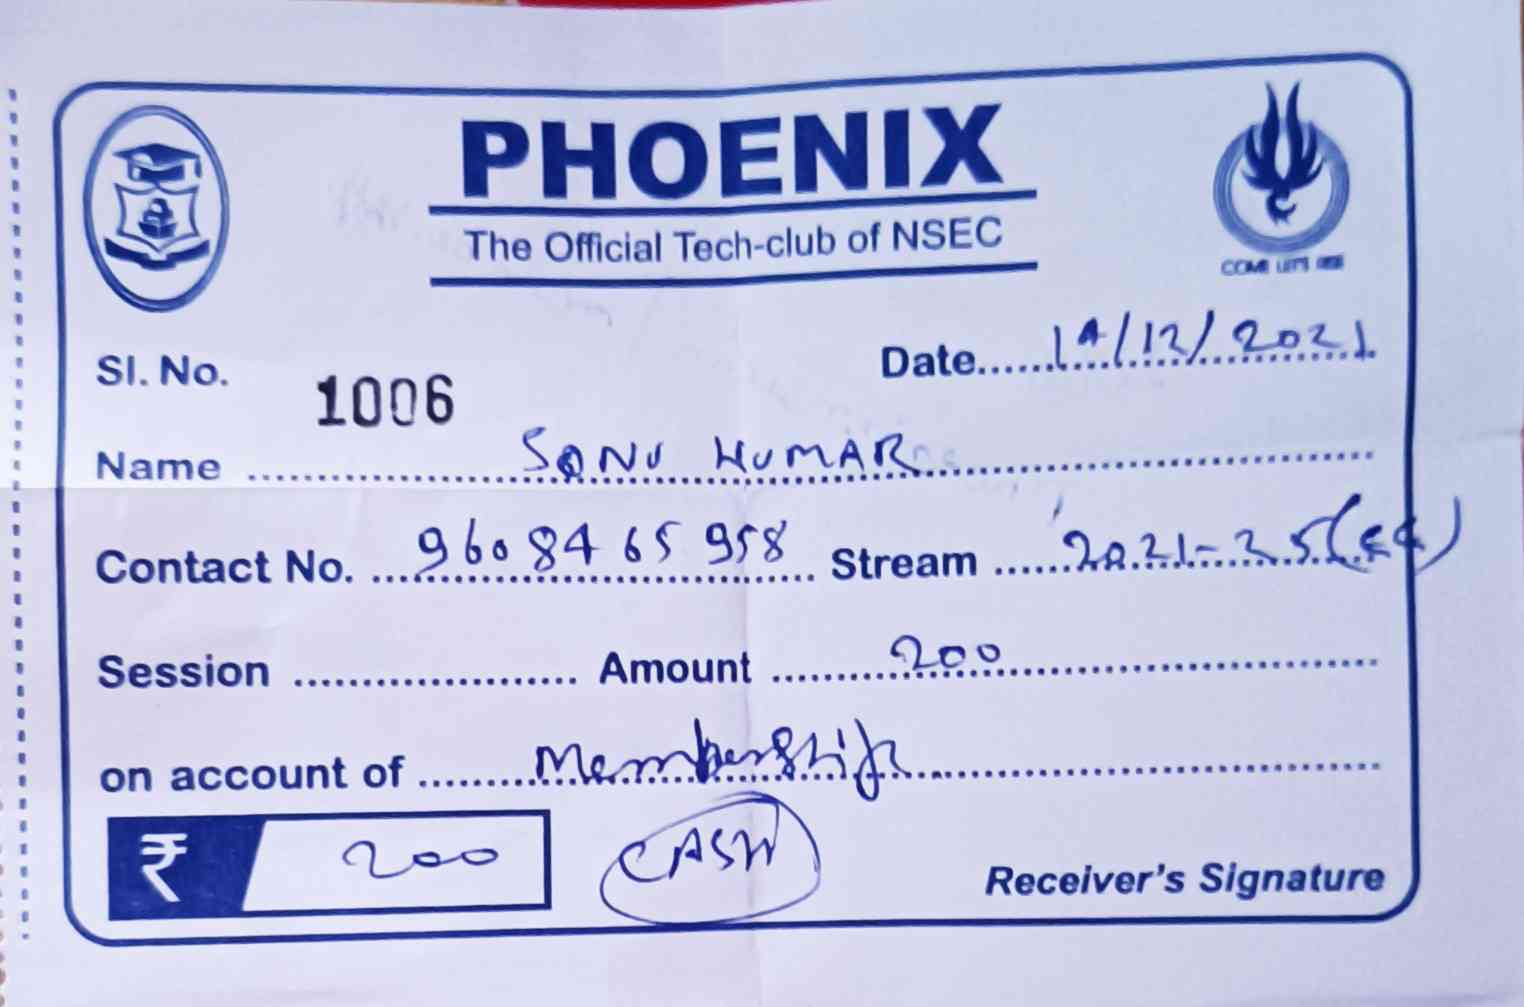 PHOENIX
The Official Tech-club of NSEC
COME LET'S RISE
Sl. No. 1006
Date......14/12/2021
Name ........ SONU KUMAR ........
Contact No. ... 9608465958 ... Stream ...... 2021-25 (EE)
Session .................... Amount ........ 200 ........
on account of ........ Membership ........
₹ 200
CASH
Receiver's Signature